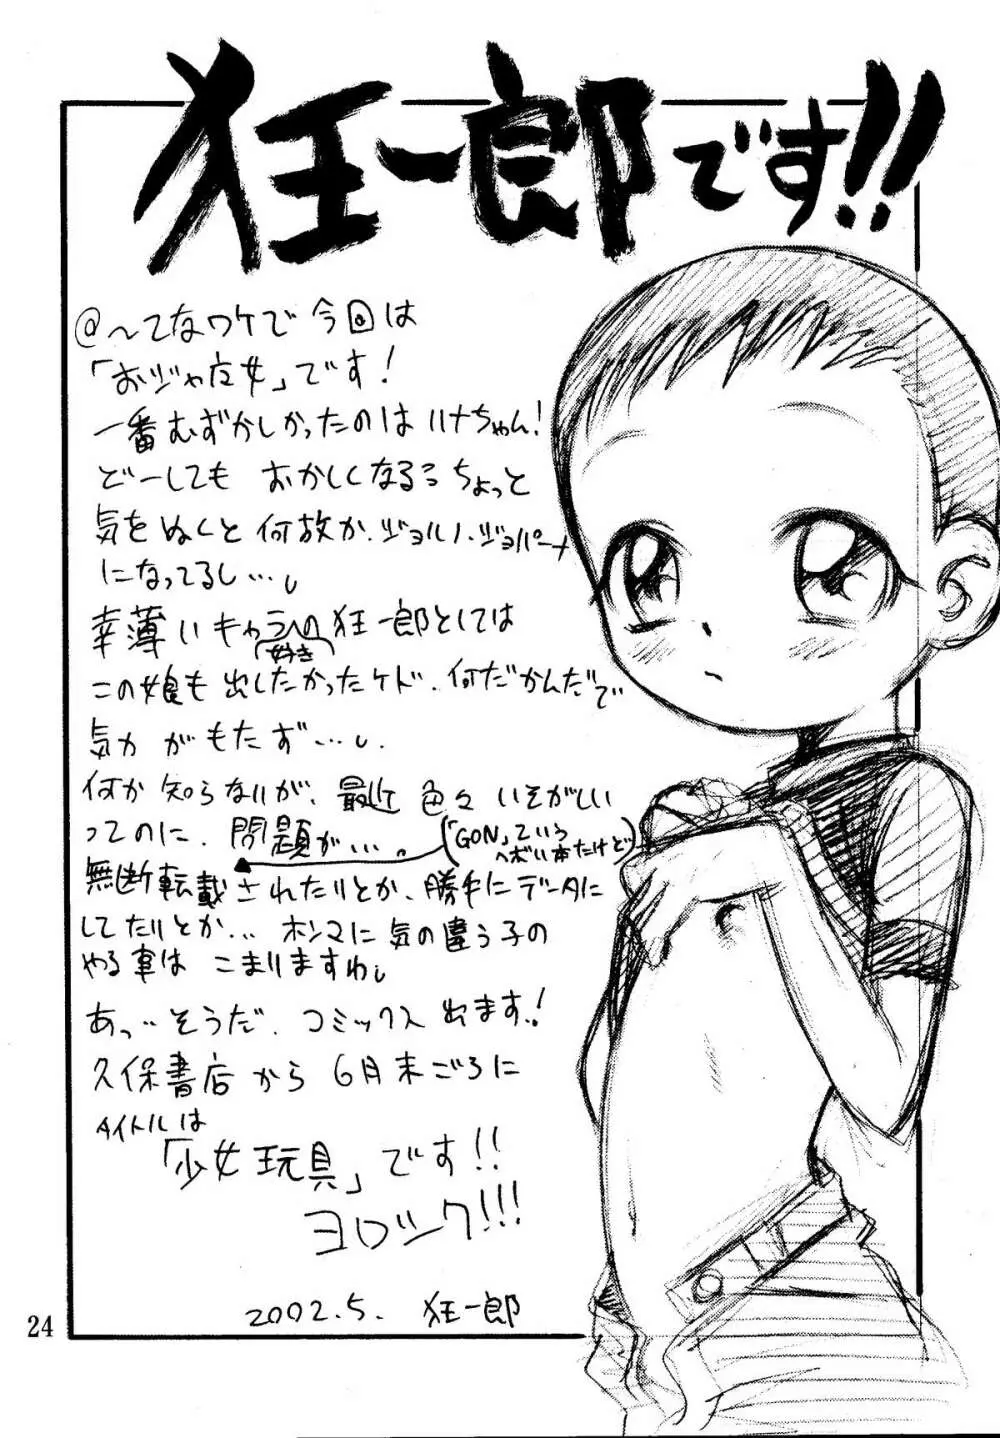 狂一郎です!!
@〜てなワケで今回は
「おジャ魔女」です!
一番むずかしかったのはハナちゃん!
どーしてもおかしくなる ちょっと
気をぬくと何故か、ジョルノ・ジョバーナ
になってるし…。
幸薄いキャラへの狂一郎としては
好き
この娘も出したかったケド、何だかんだで
気力がもたず…。
何か知らないが、最近色々いそがしい
ってのに、問題が…。
(「GON」ていう
ヘボい本だけど)
無断転載されたりとか、勝手にデータに
してたりとか… ホンマに気の違う子の
やる事はこまりますわ。
あっ…そうだ、コミックス出ます!
久保書店から6月末ごろに
タイトルは
「少女玩具」です!!
ヨロシク!!!
2002.5. 狂一郎
24